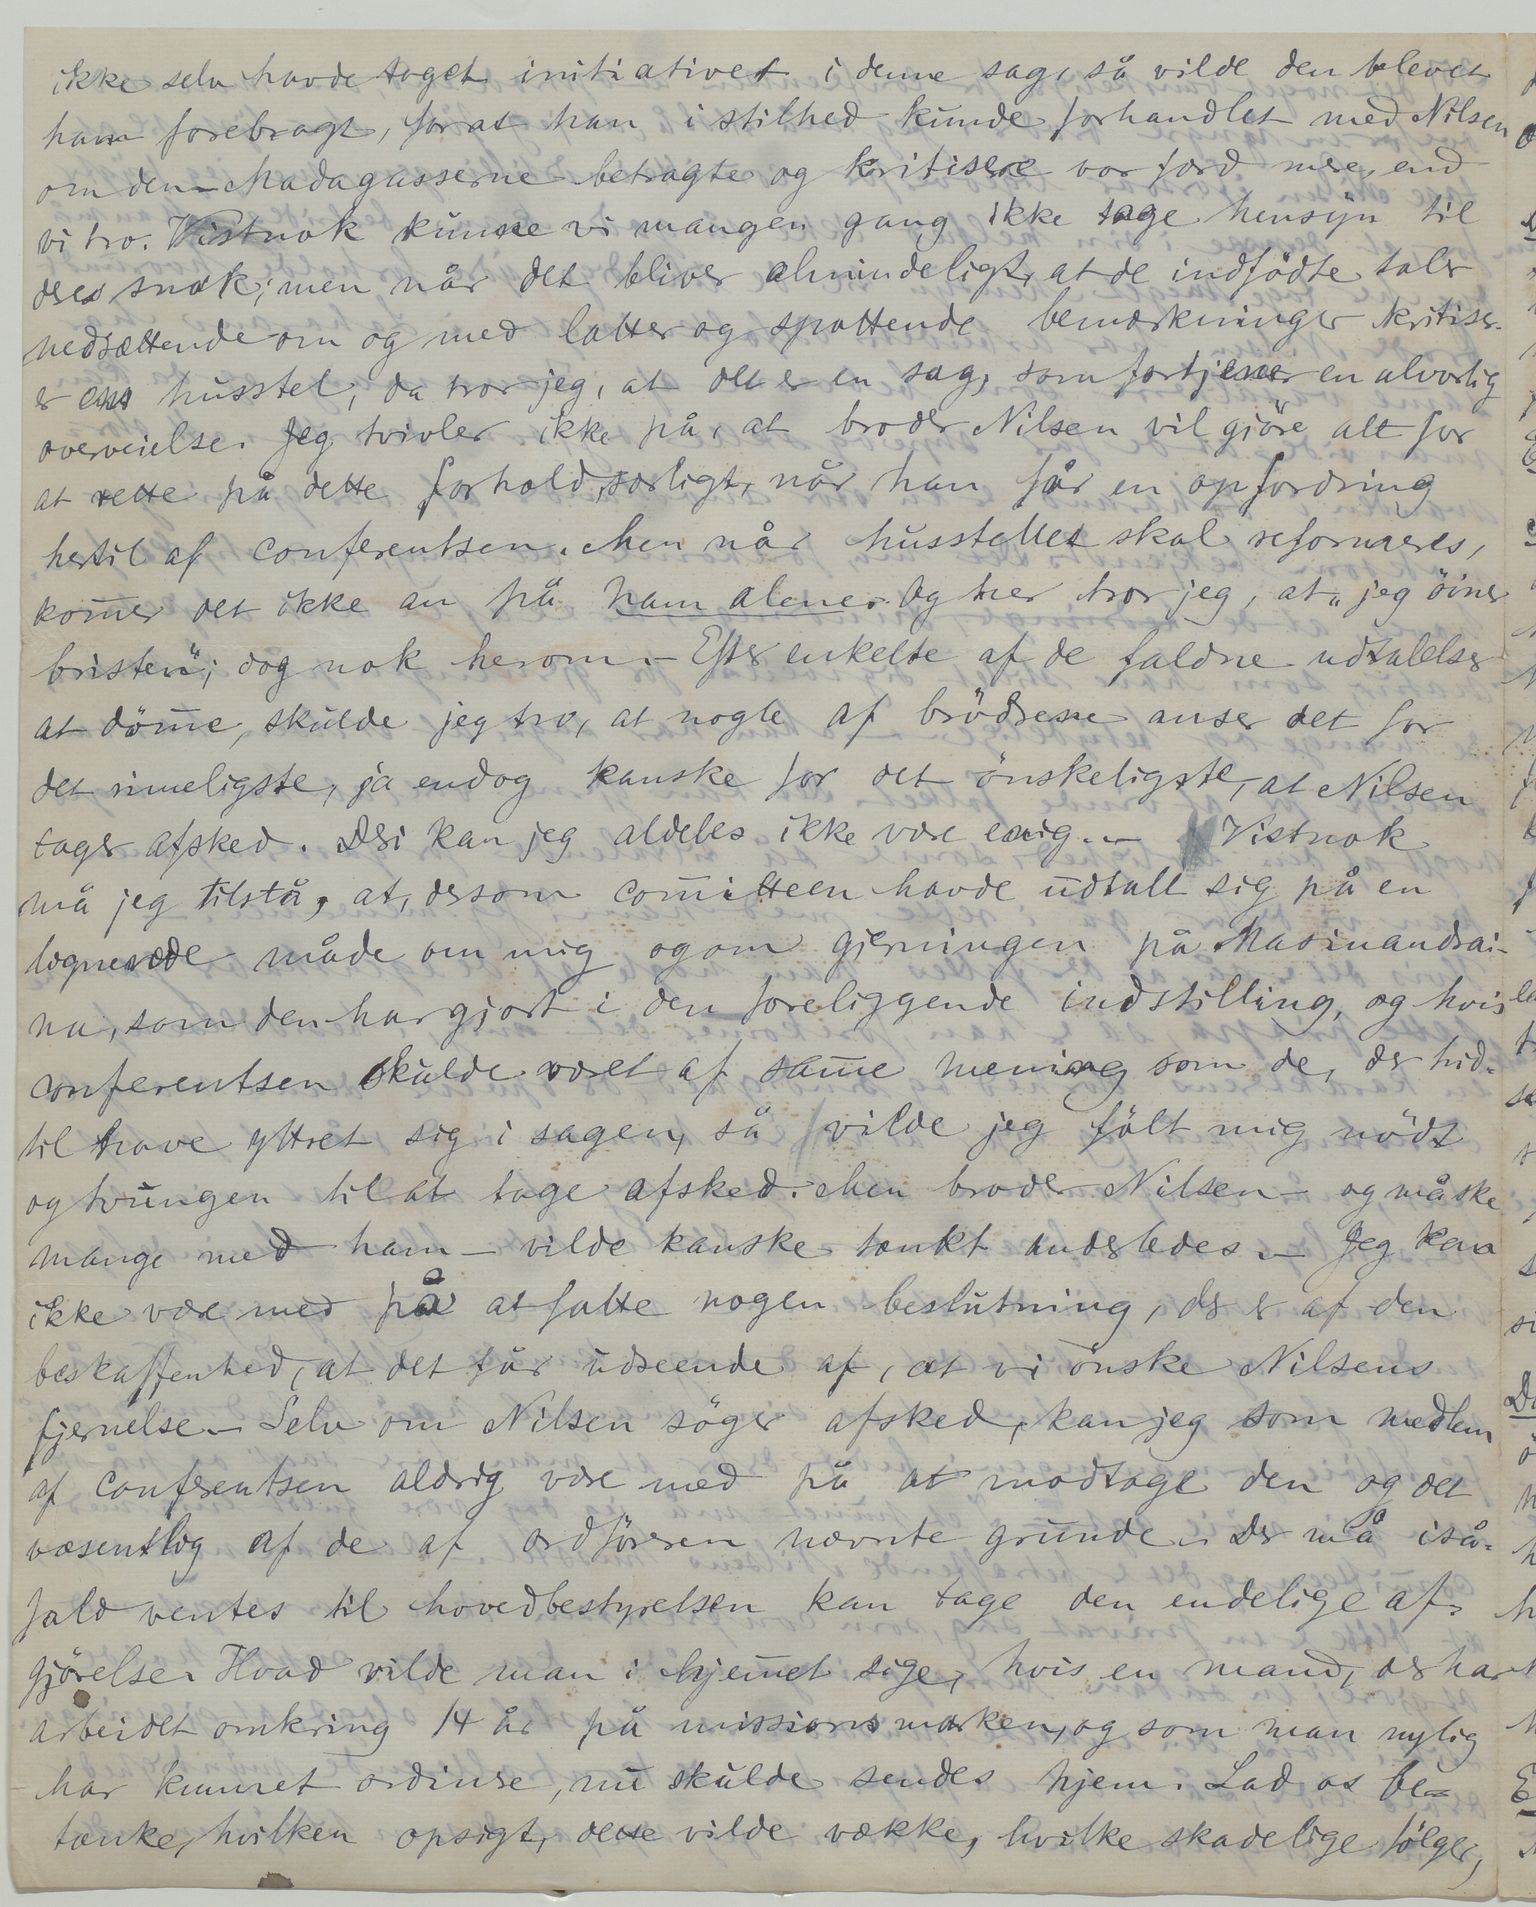 ikke selv havde taget initiativet i denne sag, så vilde den blevet
ham forebragt, for at han i stilhed kunde forhandlet med Nilsen
om den – Madagasserne betragte og kritisere vor færd mere, end
vi tro. Vistnok kunne vi mangen gang ikke tage hensyn til
deres snak; men når det bliver almindeligt, at de indfödte taler
nedsættende om og med latter og spottende bemærkninger kritiser-
er ens husstel, da tror jeg, at det er en sag, som fortjener en alvorlig
overveielse. Jeg tvivler ikke på, at broder Nilsen vil gjöre alt for
at rette på dette forhold, særligt, når han får en opfordring
hertil af conferentsen. Men når husstellet skal reformeres,
kom̅er det ikke an på ham alene. Og her tror jeg, at „jeg öiner
bristen“; dog nok herom. – Efter enkelte af de faldne udtalelser
at döm̅e, skulde jeg tro, at nogle af brödrene anser det for
det rimeligste, ja endog kanske for det önskeligste, at Nilsen
tager afsked. Deri kan jeg aldeles ikke være enig. – Vistnok
må jeg tilstå, at, dersom com̅itteen havde udtalt sig på en
lignende måde om mig og om gjerningen på Masinandrai-
na, som den har gjort i den foreliggende indstilling, og hvis
conferentsen skulde været af sam̅e mening som de, der hid-
til have yttret sig i sagen, så vilde jeg fölt mig nödt
og tvungen til at tage afsked. Men broder Nilsen – og måske
mange med ham – vilde kanske tænkt anderledes. – Jeg kan
ikke være med på at fatte nogen beslutning, der er af den
beskaffenhed, at det får udseende af, at vi önske Nilsens
fjernelse. – Selv om Nilsen söger afsked, kan jeg som medlem
af conferentsen aldrig være med på at modtage den og det
væsentlig af de af ordföreren nævnte grunde. Der må iså-
fald ventes til hovedbestyrelsen kan tage den endelige af-
gjörelse. Hvad vilde man i hjem̅et sige, hvis en mand, der har
arbeidet omkring 14 år på missionsmarken, og som man nylig
har kunnet ordinere, nu skulde sendes hjem. Lad os be-
tænke, hvilken opsigt, dette vilde vække, hvilke skadelige fölger,